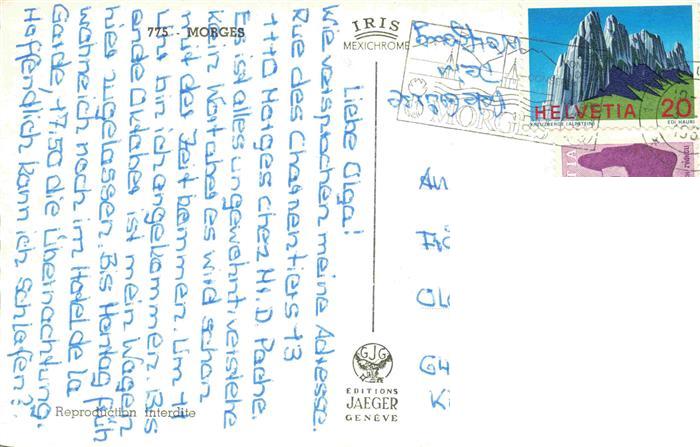 775 - MORGES
IRIS
MEXICHROME
HELVETIA 20
KREUZBERGE (ALPSTEIN)
EDI HAURI
MORGES
Liebe Olga!
Wie versprochen meine Adresse.
Rue des Charpentiers 13
1110 Morges chez M. D. Pache.
Es ist alles ungewohnt, verstehe
kein Wort aber es wird schon
mit der Zeit kommen. Um 11
Uhr bin ich angekommen. Bis
ende Oktober ist mein Wagen
hier zugelassen. Bis Montag früh
wohne ich noch im Hotel de la
Garde, 17.50 die Übernachtung.
Hoffendlich kann ich schlafen?
ÉDITIONS
JAEGER
GENÈVE
Reproduction interdite